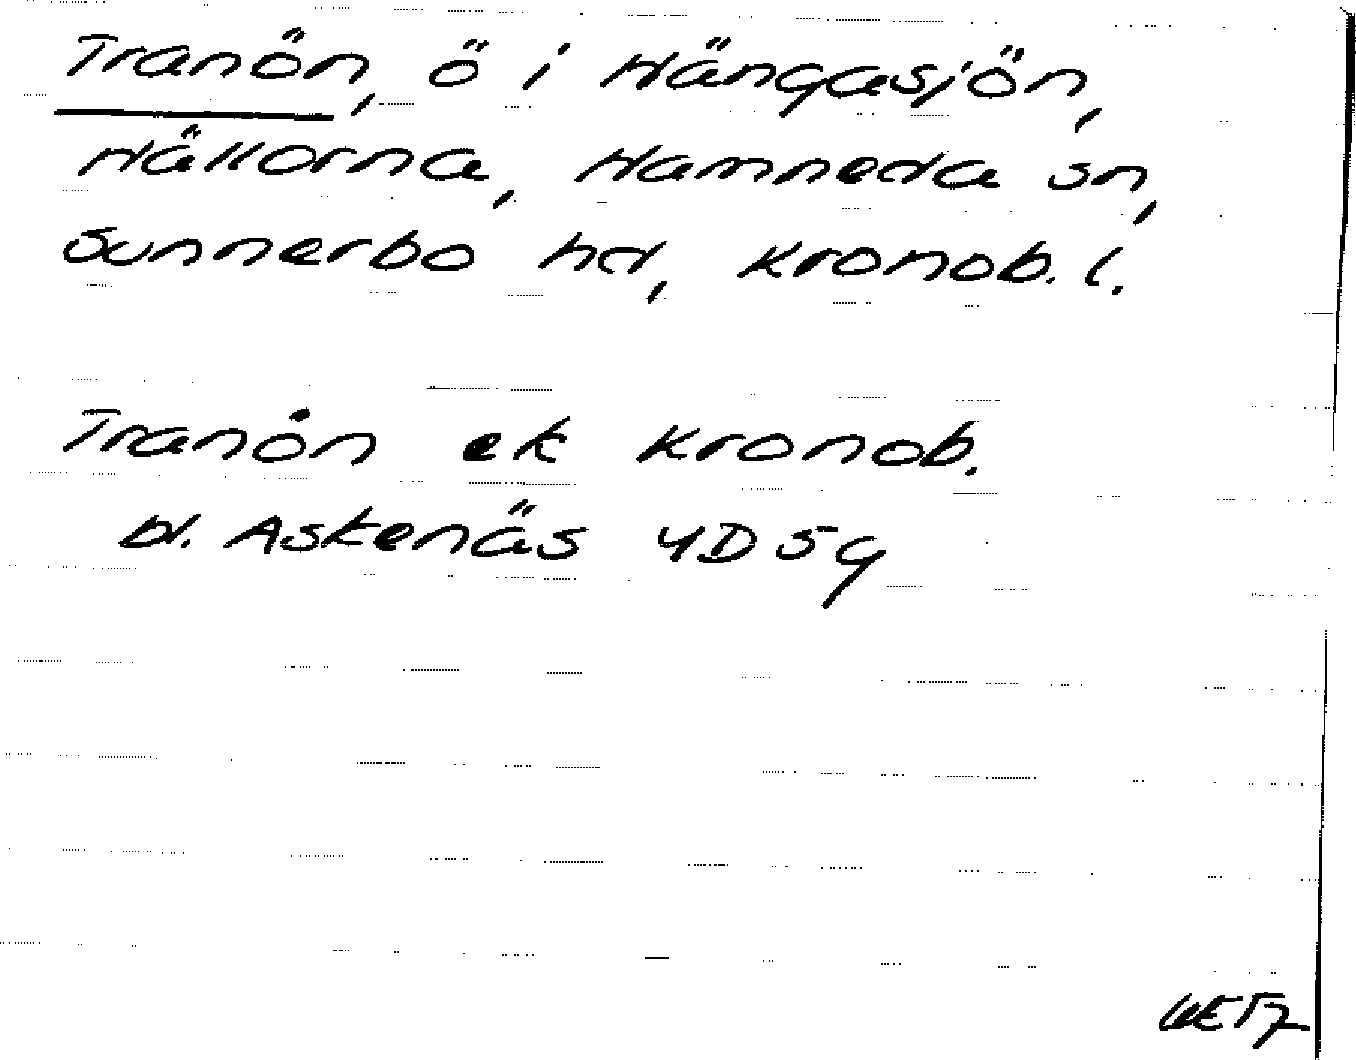 Tranön, ö i Hängasjön,
Hällorna, Hamneda sn,
Sunnerbo hd, Kronob. l.
Tranön ek Kronob.
bl. Askenäs 4D5g